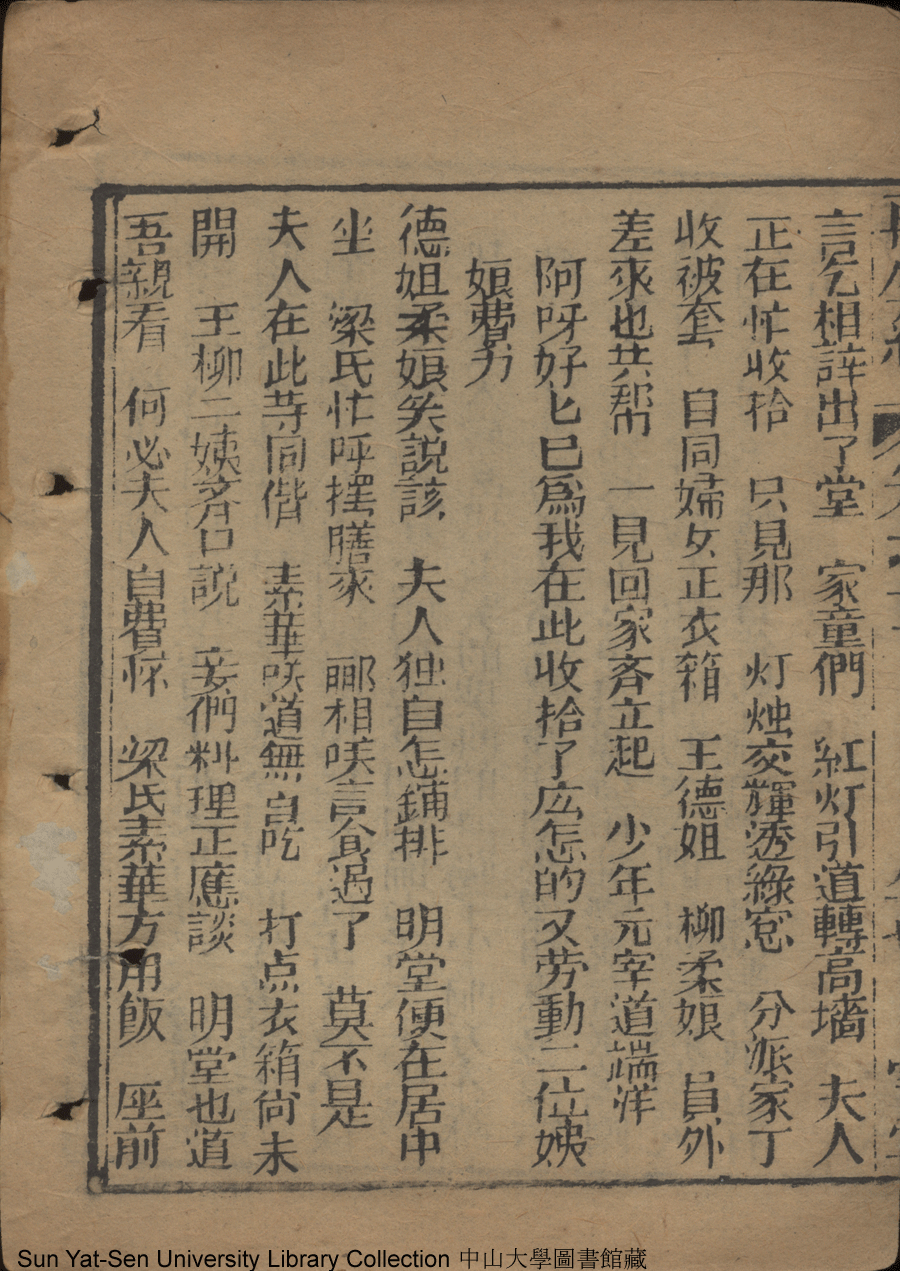 言乞相辞出了堂　家童們　紅灯引道轉高墻　夫人
正在忙收拾　只見那　灯烛交輝透綠窓　分派家丁
收被套　自同婦女正衣箱　王德姐　柳柔娘　員外
差來也共帮　一見回家斉立起　少年元宰道端洋
阿呀好匕巳爲我在此收拾了庅怎的又劳動二位姨
娘費力
德姐柔娘笑説該　夫人独自怎鋪排　明堂便在居中
坐　梁氏忙呼擺膳來　郦相咲言食過了　莫不是
夫人在此等同偕　素華咲道無曾吃　打点衣箱尙未
開　王柳二姨斉口説　妾們料理正應談　明堂也道
吾親看　何必夫人自費怀　梁氏素華方用飯　座前
Sun Yat-Sen University Library Collection 中山大學圖書館藏